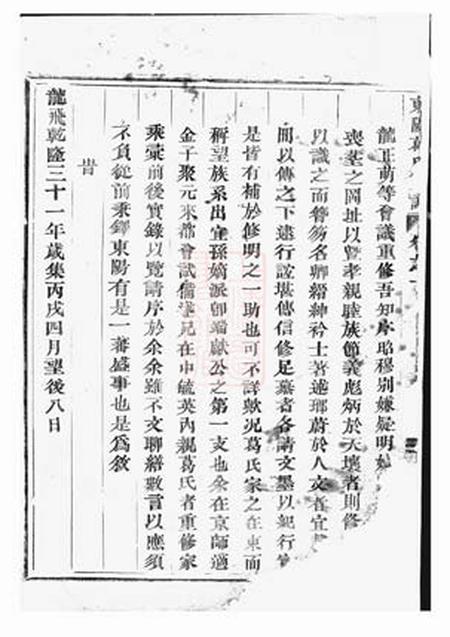 東陽葛氏
龍正萌等會議重修吾知序昭穆別嫌疑明
喪塋之岡址以曁孝親睦族節義彪炳於天壤者則修
以識之而簪笏名卿縉紳衿士著述瑯蔚於人文者宜
而以傳之下逮行誼堪傳信修足纂者各請文墨以紀行
是皆有補於修明之一助也可不詳歟况葛氏家之在東而
稱望族系出宜孫嫡派卽端獻公之第一支也余在京師適
金子聚元來都會試備述兄在中毓英內親葛氏者重修家
乘彙前後實錄以覽請序於余余雖不文聊繕數言以應須
不負從前乘鐸東陽有是一蕃盛事也是為敘
旹
龍飛乾隆三十一年歲集丙戌四月望後八日